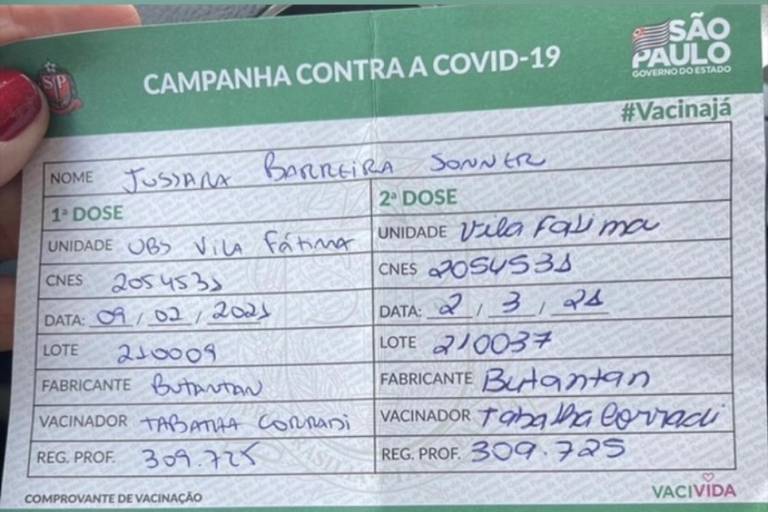 CAMPANHA CONTRA A COVID-19
SP
SÃO PAULO
GOVERNO DO ESTADO
#Vacinajá
NOME JUSSARA BARREIRA SONNER
1ª DOSE
UNIDADE UBS VILA FÁTIMA
CNES 2054531
DATA: 09 / 02 / 2021
LOTE 210009
FABRICANTE BUTANTAN
VACINADOR TABATHA CORRADI
REG. PROF. 309.725
2ª DOSE
UNIDADE Vila Fatima
CNES 2054531
DATA: 2 / 3 / 21
LOTE 210037
FABRICANTE Butantan
VACINADOR Tabatha Corradi
REG. PROF. 309.725
COMPROVANTE DE VACINAÇÃO
VACIVIDA